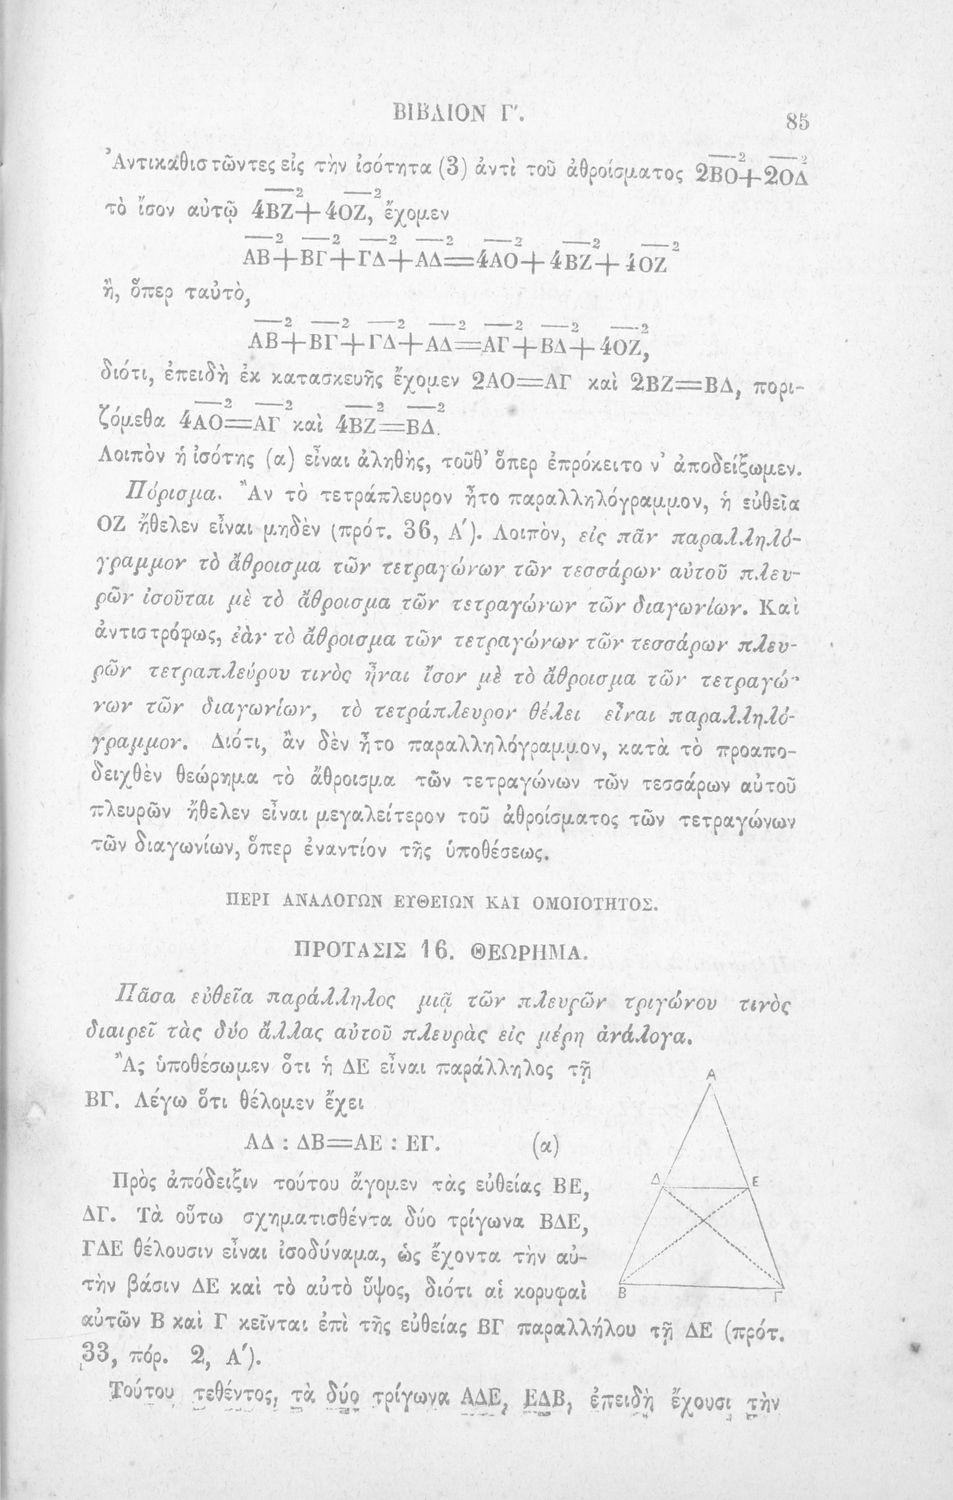 ΒΙΒΛΙΟΝ Γʹ.
85
Ἀντικαθιστῶντες εἰς τὴν ἰσότητα (3) ἀντὶ τοῦ ἀθροίσματος 2ΒΟ²+2ΟΔ²
τὸ ἴσον αὐτῷ 4ΒΖ²+4ΟΖ², ἔχομεν
ΑΒ²+ΒΓ²+ΓΔ²+ΑΔ²=4ΑΟ²+4ΒΖ²+4ΟΖ²
ἢ, ὅπερ ταὐτὸ,
ΑΒ²+ΒΓ²+ΓΔ²+ΑΔ²=ΑΓ²+ΒΔ²+4ΟΖ²,
διότι, ἐπειδὴ ἐκ κατασκευῆς ἔχομεν 2ΑΟ=ΑΓ καὶ 2ΒΖ=ΒΔ, πορι-
ζόμεθα 4ΑΟ²=ΑΓ² καὶ 4ΒΖ²=ΒΔ².
Λοιπὸν ἡ ἰσότης (α) εἶναι ἀληθὴς, τοῦθ' ὅπερ ἐπρόκειτο ν' ἀποδείξωμεν.
Πόρισμα. Ἂν τὸ τετράπλευρον ἦτο παραλληλόγραμμον, ἡ εὐθεῖα
ΟΖ ἤθελεν εἶναι μηδὲν (πρότ. 36, Αʹ). Λοιπὸν, εἰς πᾶν παραλληλό-
γραμμον τὸ ἄθροισμα τῶν τετραγώνων τῶν τεσσάρων αὐτοῦ πλευ-
ρῶν ἰσοῦται μὲ τὸ ἄθροισμα τῶν τετραγώνων τῶν διαγωνίων. Καὶ
ἀντιστρόφως, ἐὰν τὸ ἄθροισμα τῶν τετραγώνων τῶν τεσσάρων πλευ-
ρῶν τετραπλεύρου τινὸς ἦναι ἴσον μὲ τὸ ἄθροισμα τῶν τετραγώ-
νων τῶν διαγωνίων, τὸ τετράπλευρον θέλει εἶναι παραλληλό-
γραμμον. Διότι, ἂν δὲν ἦτο παραλληλόγραμμον, κατὰ τὸ προαπο-
δειχθὲν θεώρημα τὸ ἄθροισμα τῶν τετραγώνων τῶν τεσσάρων αὐτοῦ
πλευρῶν ἤθελεν εἶναι μεγαλείτερον τοῦ ἀθροίσματος τῶν τετραγώνων
τῶν διαγωνίων, ὅπερ ἐναντίον τῆς ὑποθέσεως.
ΠΕΡΙ ΑΝΑΛΟΓΩΝ ΕΥΘΕΙΩΝ ΚΑΙ ΟΜΟΙΟΤΗΤΟΣ.
ΠΡΟΤΑΣΙΣ 16. ΘΕΩΡΗΜΑ.
Πᾶσα εὐθεῖα παράλληλος μιᾷ τῶν πλευρῶν τριγώνου τινὸς
διαιρεῖ τὰς δύο ἄλλας αὐτοῦ πλευρὰς εἰς μέρη ἀνάλογα.
Ἂς ὑποθέσωμεν ὅτι ἡ ΔΕ εἶναι παράλληλος τῇ
ΒΓ. Λέγω ὅτι θέλομεν ἔχει
ΑΔ : ΔΒ=ΑΕ : ΕΓ. (α)
Πρὸς ἀπόδειξιν τούτου ἄγομεν τὰς εὐθείας ΒΕ,
ΔΓ. Τὰ οὕτω σχηματισθέντα δύο τρίγωνα ΒΔΕ,
ΓΔΕ θέλουσιν εἶναι ἰσοδύναμα, ὡς ἔχοντα τὴν αὐ-
τὴν βάσιν ΔΕ καὶ τὸ αὐτὸ ὕψος, διότι αἱ κορυφαὶ
αὐτῶν Β καὶ Γ κεῖνται ἐπὶ τῆς εὐθείας ΒΓ παραλλήλου τῇ ΔΕ (πρότ.
33, πόρ. 2, Αʹ).
Τούτου τεθέντος, τὰ δύο τρίγωνα ΑΔΕ, ΕΔΒ, ἐπειδὴ ἔχουσι τὴν
Α
Δ
Ε
Β
Γ